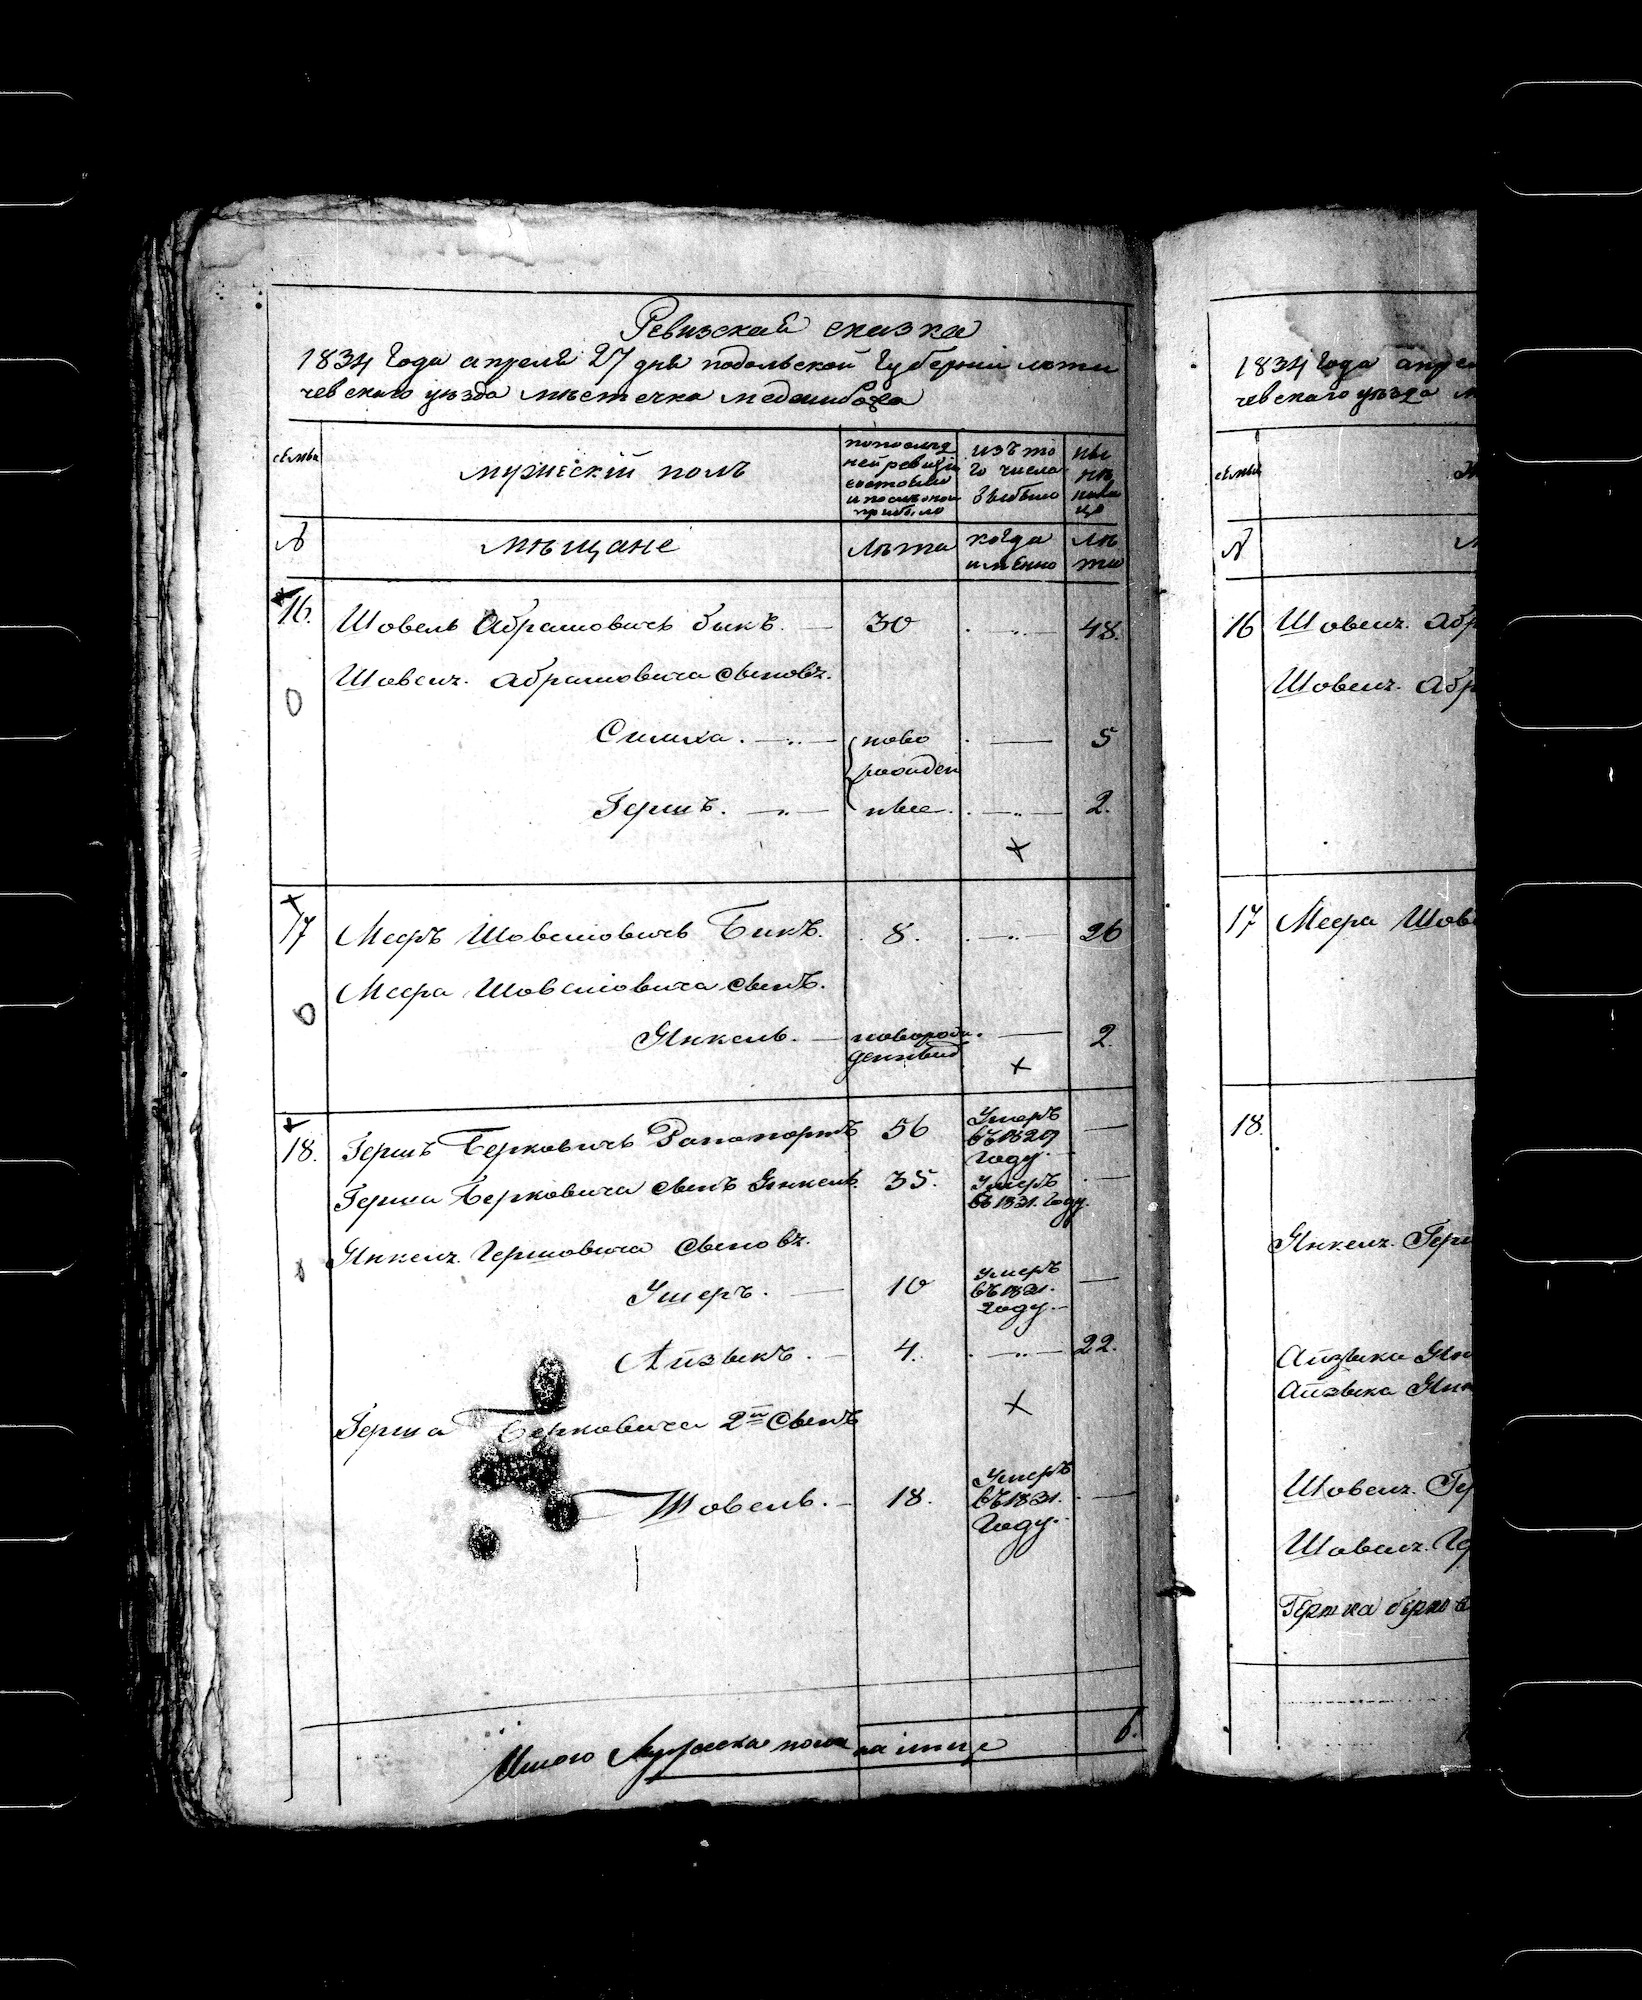 Ревизская сказка
1834 Года апреля 27 дня подольской Губернии лоти
чевскаго уѣзда мѣстечка меджибожа
семьи
мужескій полъ
попослѣд
ней ревизіи
состояло
и послѣ оной
прибыло
изъ то
го числа
выбыло
ны
нѣ
на ли
цо
№
мѣщане
лѣта
когда
именно
лѣ
та
16. Шовель Абрамовичь бикъ. — 30 . —„— 48.
Шовеля. абрамовича сыновя.
Симха. —„— ново . — 5
рожден
Гершъ. —„— ные . —„— 2.
17 Мееръ Шовелиовичь Бикъ. 8. . —„— 26
Меера Шовелиовича сынъ.
Янкель. — новорож . — 2.
денный
18. Гершъ Берковичь Рапапортъ 56 Умеръ
въ 1829
Году. —
Герша Берковича сынъ Янкель 35. Умеръ
въ 1831. Году. —
Янкеля. Гершовича сыновя.
Ушеръ. — 10 Умеръ
въ 1821.
Году. —
Айзыкъ. — 4. . —„— 22.
Герша Берковича 2й сынъ
Шовель. — 18. Умеръ
въ 1831.
Году. —
Итого Мужеска пола на лице 6.
1834 Года апре
чевскаго уѣзда м
семьи
№
16 Шовеля. Абр
Шовеля. Абр
17 Меера Шове
18.
Янкеля. Герш
Айзыка Ян
Айзыка Янк
Шовеля. Ге
Шовеля. Ге
Гершка берков